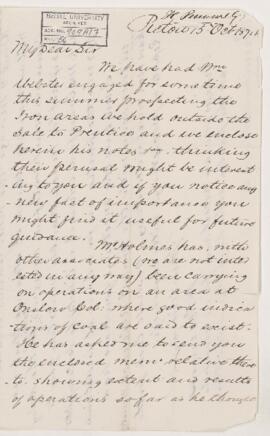 McGILL UNIVERSITY
ARCHIVES
ACC. NO.
REF.
Pictou 15 Oct 1874
My Dear Sir
We have had Mr
Webster engaged for some time
this summer prospecting the
Iron areas we hold outside the
Sale to Prentice and we enclose
herein his notes thinking
their perusal might be interest
ing to you and if you notice any
new fact of importance you
might find it useful for future
guidance.
Mr Holmes has, with
other associates (we are not inter
ested in any way) been carrying
on operations on an area at
Onslow Col: where good indica
tions of coal are said to exist.
He has asked me to send you
the enclosed mem: relative there
to. showing extent and results
of operations so far as he